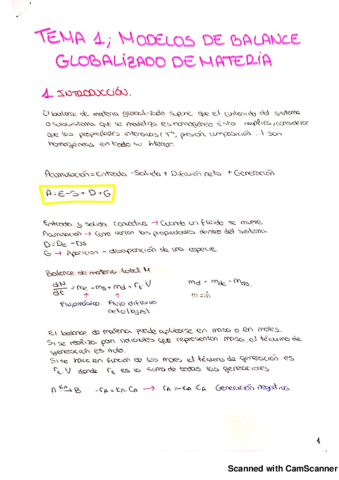 TEMA 1; MODELOS DE BALANCE
GLOBALIZADO DE MATERIA
1. INTRODUCCIÓN.
El balance de materia globalizado supone que el contenido del sistema
o subsistema que se modeliza es homogéneo. Esto implica considerar
que las propiedades intensivas (Tª, presión, composición...) son
homogéneas en todo su interior.
Acumulación = Entrada - Salida + Difusión neta + Generación
A = E - S + D + G
Entrada y salida convectiva → Cuando un fluido se mueve.
Acumulación → Como varían las propiedades dentro del sistema.
D = De - Ds
G → Aparición - desaparición de una especie.
Balance de materia total M
dM/dt = me - ms + md + rt V md = mde - mds
Flujo másico. Flujo difusivo m = ṁ
neto (kg/s)
El balance de materia puede aplicarse en masa o en moles.
Si se realiza para variables que representan masa, el término de
generación es nulo.
Si se hace en función de los moles el término de generación es
rt V donde rt es la suma de todas las generaciones
A → B -rA = KA CA → rA = -KA CA Generación negativa
1
Scanned with CamScanner